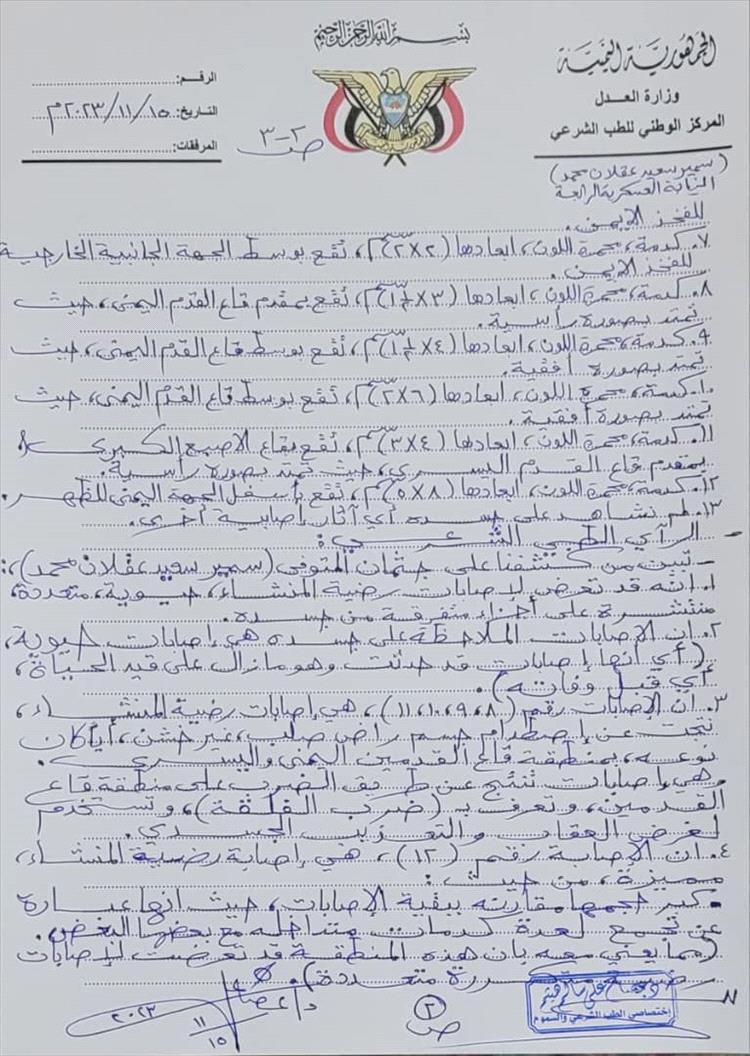 بسم الله الرحمن الرحيم
الجمهورية اليمنية
وزارة العدل
المركز الوطني للطب الشرعي
الرقم:
التاريخ: ٢٠٢٣/١١/١٥م
المرفقات:
ص ٢-٣
(سمير سعيد عقلان محمد)
النيابة العسكرية الرابعة
للفخذ الايمن.
٧. كدمة، محمرة اللون، ابعادها (٢×٢سم)، تقع بوسط الجهة الجانبية الخارجية
للفخذ الايمن.
٨. كدمة، محمرة اللون، ابعادها (٣×½١سم)، تقع بمقدم قاع القدم اليمنى، حيث
تمتد بصورة رأسية.
٩. كدمة، محمرة اللون، ابعادها (٤×½١سم)، تقع بوسط قاع القدم اليمنى، حيث
تمتد بصورة أفقية.
١٠. كدمة، محمرة اللون، ابعادها (٦×٢سم)، تقع بوسط قاع القدم اليمنى، حيث
تمتد بصورة أفقية.
١١. كدمة، محمرة اللون، ابعادها (٤×٣سم)، تقع بقاع الاصبع الكبرى
بمقدم قاع القدم اليسرى، حيث تمتد بصورة رأسية.
١٢. كدمة، محمرة اللون، ابعادها (٨×٥سم)، تقع بأسفل الجهة اليمنى للظهر.
١٣. لم نشاهد على جسده أي آثار إصابية أخرى.
- الرأي الطبي الشرعي:
- تبين من كشفنا على جثمان المتوفى (سمير سعيد عقلان محمد)،:
١. انه قد تعرض لإصابات رضية المنشاء، حيوية، متعددة،
منتشرة على أجزاء متفرقة من جسده.
٢. ان الإصابات الملاحظة على جسده هي إصابات حيوية،
(أي أنها إصابات قد حدثت وهو مازال على قيد الحياة،
أي قبل وفاته).
٣. ان الإصابات رقم (٨، ٩، ١٠، ١١)، هي إصابات رضية المنشاء،
نتجت عن إصطدام جسم راض صلب، غير خشن، أياً كان
نوعه، بمنطقة قاع القدمين اليمنى واليسرى.
وهي إصابات تنتج عن طريق الضرب على منطقة قاع
القدمين، وتعرف بـ (ضرب الفلقة)، وتستخدم
لغرض العقاب والتعذيب الجسدي.
٤. ان الإصابة رقم (١٢)، هي إصابة رضية المنشاء،
مميزة، من حيث:
كبر حجمها مقارنه ببقية الإصابات، حيث انها عبارة
عن تجمع لعدة كدمات متداخله مع بعضها البعض.
(مما يعني معه بان هذه المنطقة قد تعرضت لإصابات
متعددة).
ص ٢
٢٠٢٣/١١/١٥
إختصاصي الطب الشرعي والسموم